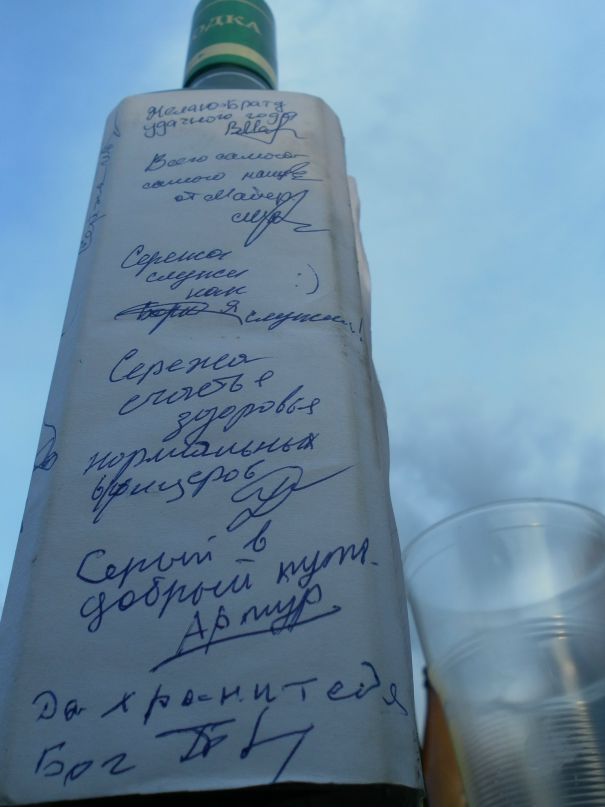 ВОДКА
Желаю Брату
удачного года
Bella
Всего самого
самого
от Майер
Сережа
служи :)
как
я служил!
Сережа
счастье
здоровья
нормальных
офицеров
Серый в
добрый путь.
Артур
Да хранит тебя
Бог